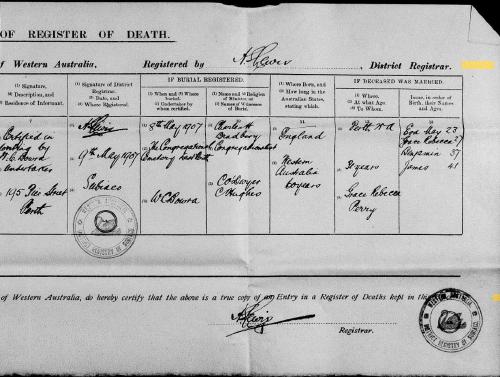 OF REGISTER OF DEATH.
of Western Australia, Registered by District Registrar.
(1) Signature,
(2) Description, and
(3) Residence of Informant.
(1) Signature of District Registrar.
(2) Date, and
(3) Where Registered.
IF BURIAL REGISTERED.
(1) When and (2) Where buried.
(3) Undertaker by whom certified.
(1) Name and (2) Religion of Minister, or
(3) Names of Witnesses of Burial.
(1) Where Born, and
(2) How long in the Australian States, stating which.
IF DECEASED WAS MARRIED.
(1) Where,
(2) At what Age,
(3) To Whom.
Issue, in order of Birth, their Names and Ages.
Certified in writing by
W. C. Bowra
Undertaker
195 Pier Street
Perth
9th May 1907
Subiaco
8th May 1907
The Congregational Cemetery East Perth
W C Bowra
Charles H Bradbury
Congregationalist
C O'Dwyer
C Hughes
England
Western Australia
60 years
Perth, W A
Grace Rebecca Perry
Eva May 23
Grace Rebecca
Benjamin 37
James 41
of Western Australia, do hereby certify that the above is a true copy of an Entry in a Register of Deaths kept in this
Registrar.